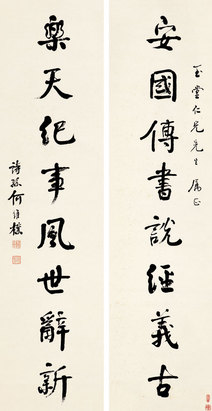 玉堂仁兄先生屬正
安國傳書說經義古
樂天紀事風世辭新
詩孫何維樸